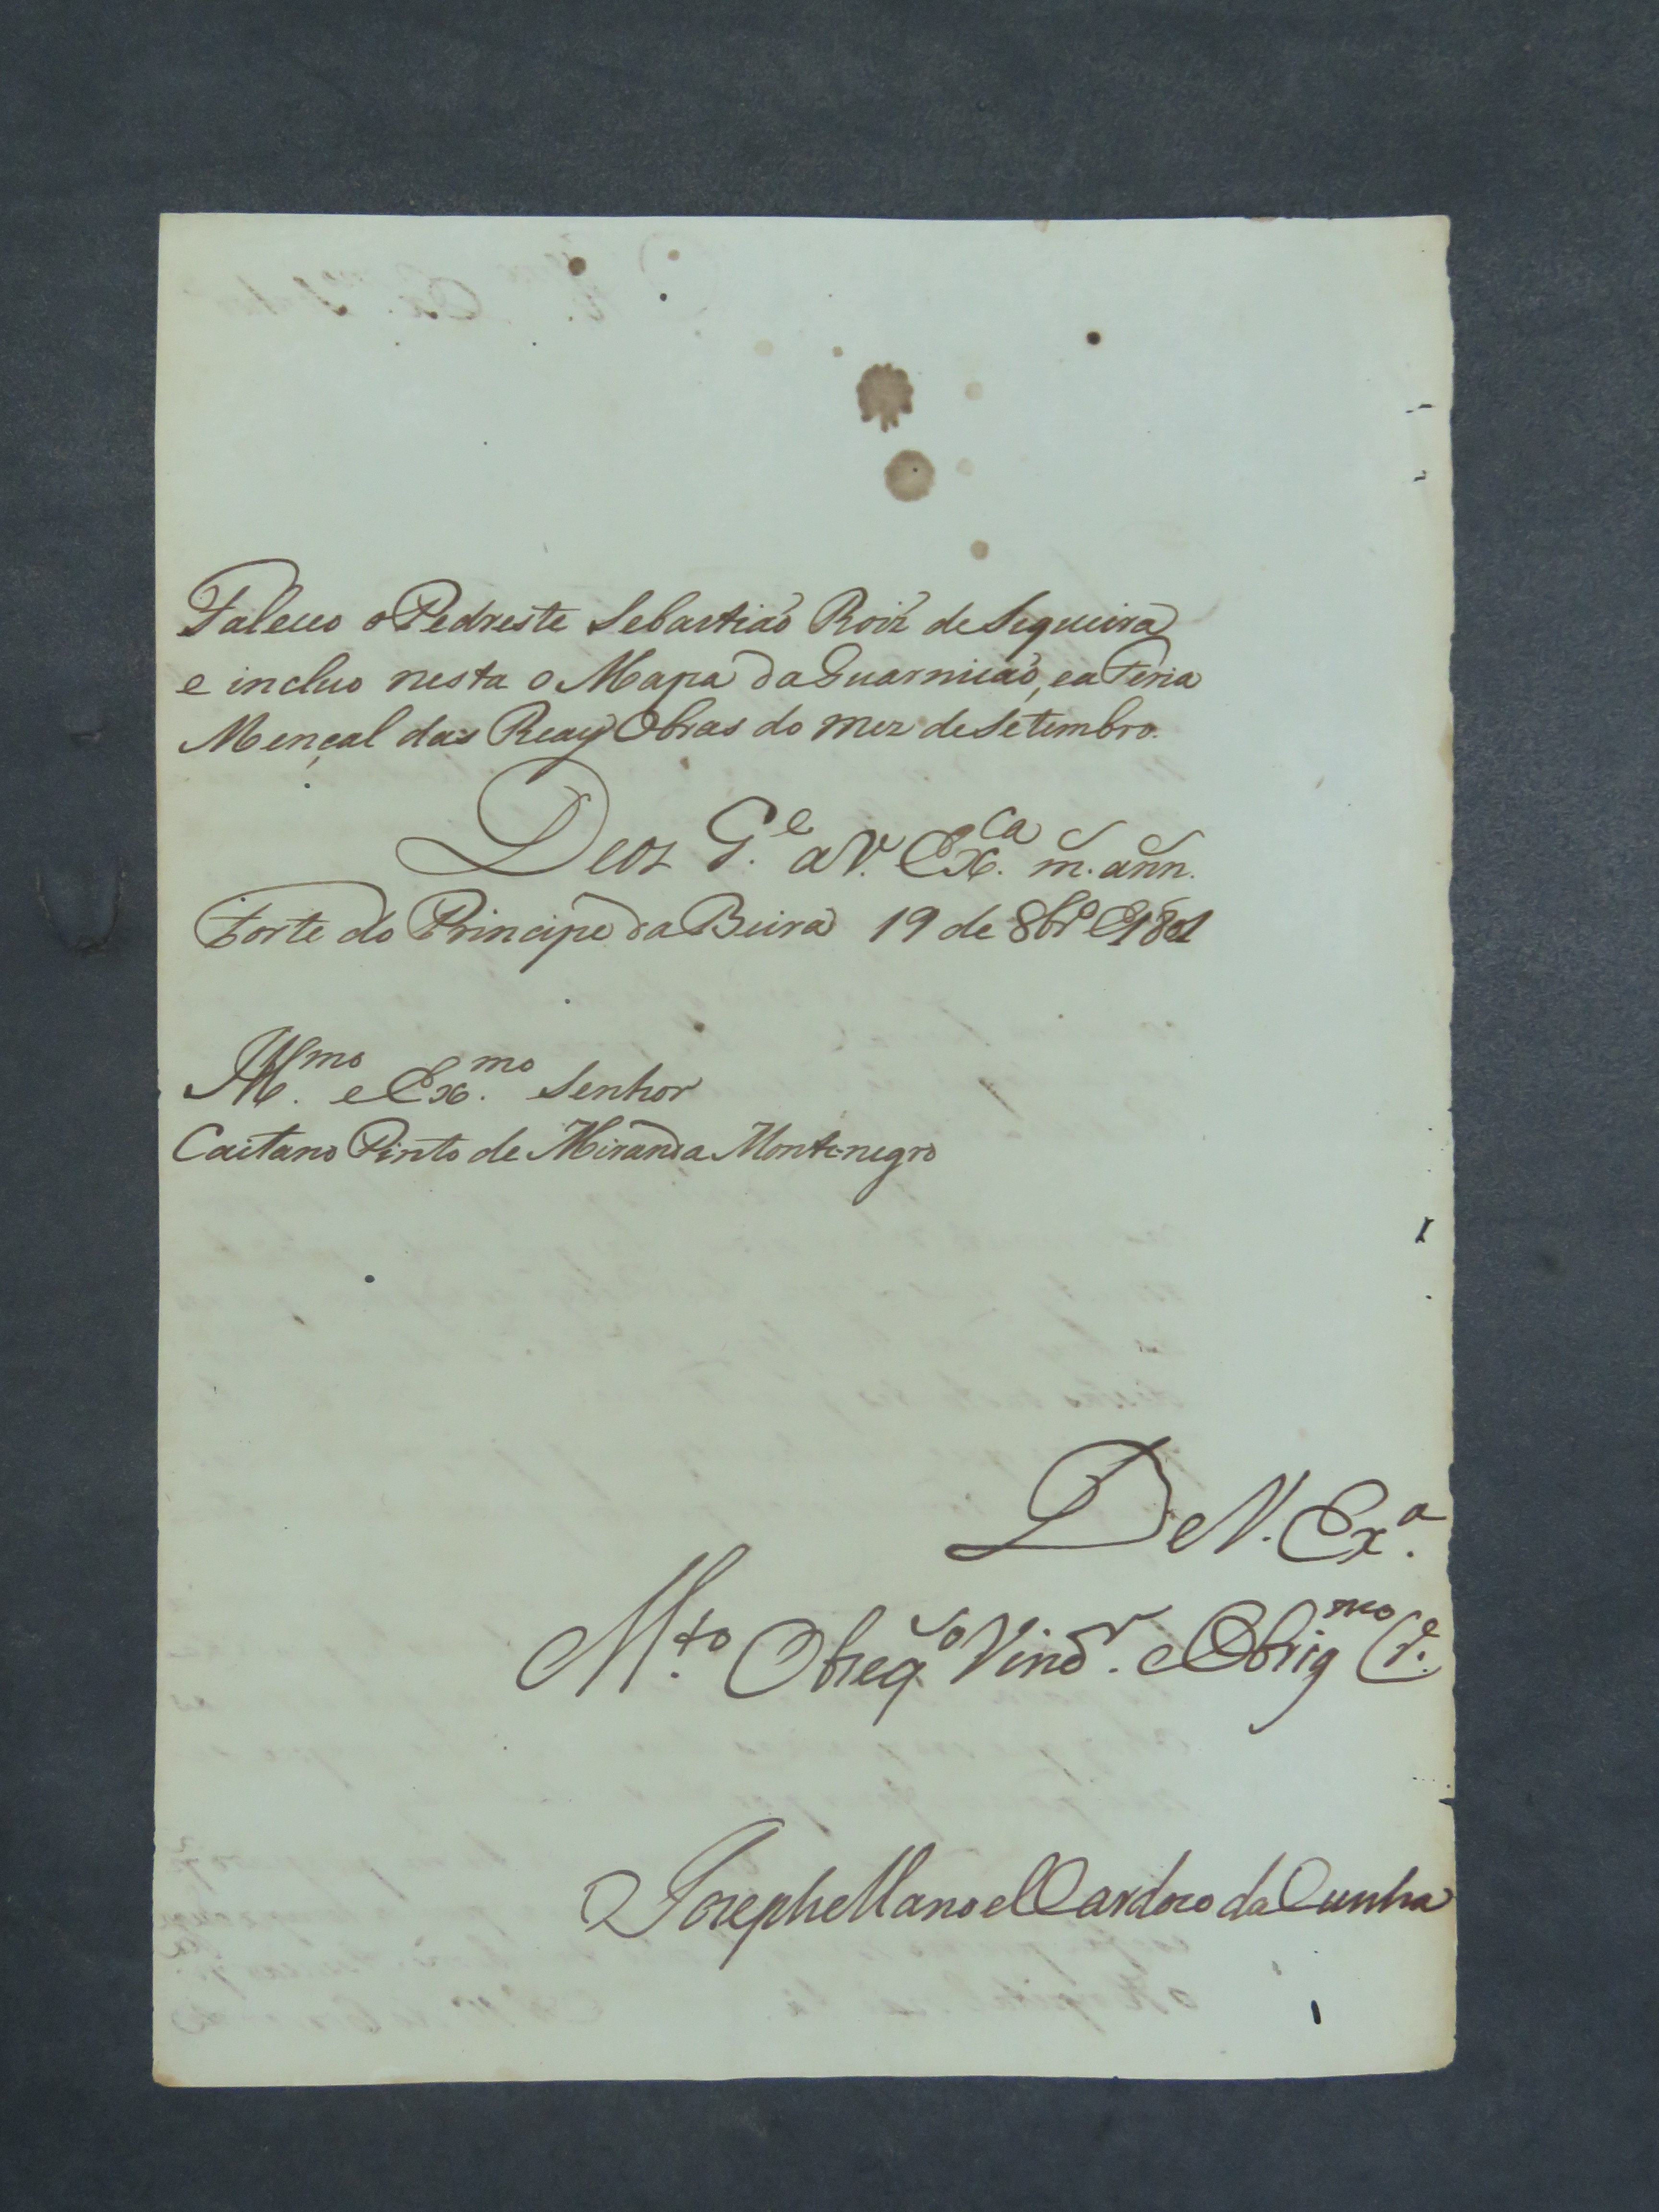 Faleceo o Pedreste Sebastiaõ Roiz de Siqueira
e incluo nesta o Mapa da Guarniçaõ, e a Feria
Mençal das Reays Obras do mez de Setembro.
Deos G.e a V. Ex.ca m. ann.
Forte do Principe da Beira 19 de 8br.o de 1801
Ill.mo e Ex.mo Senhor
Caetano Pinto de Miranda Montenegro
De V. Ex.a
M.to Obseq.o Vener.dor e Obrig.mo C.e
Joseph Manoel Cardozo da Cunha